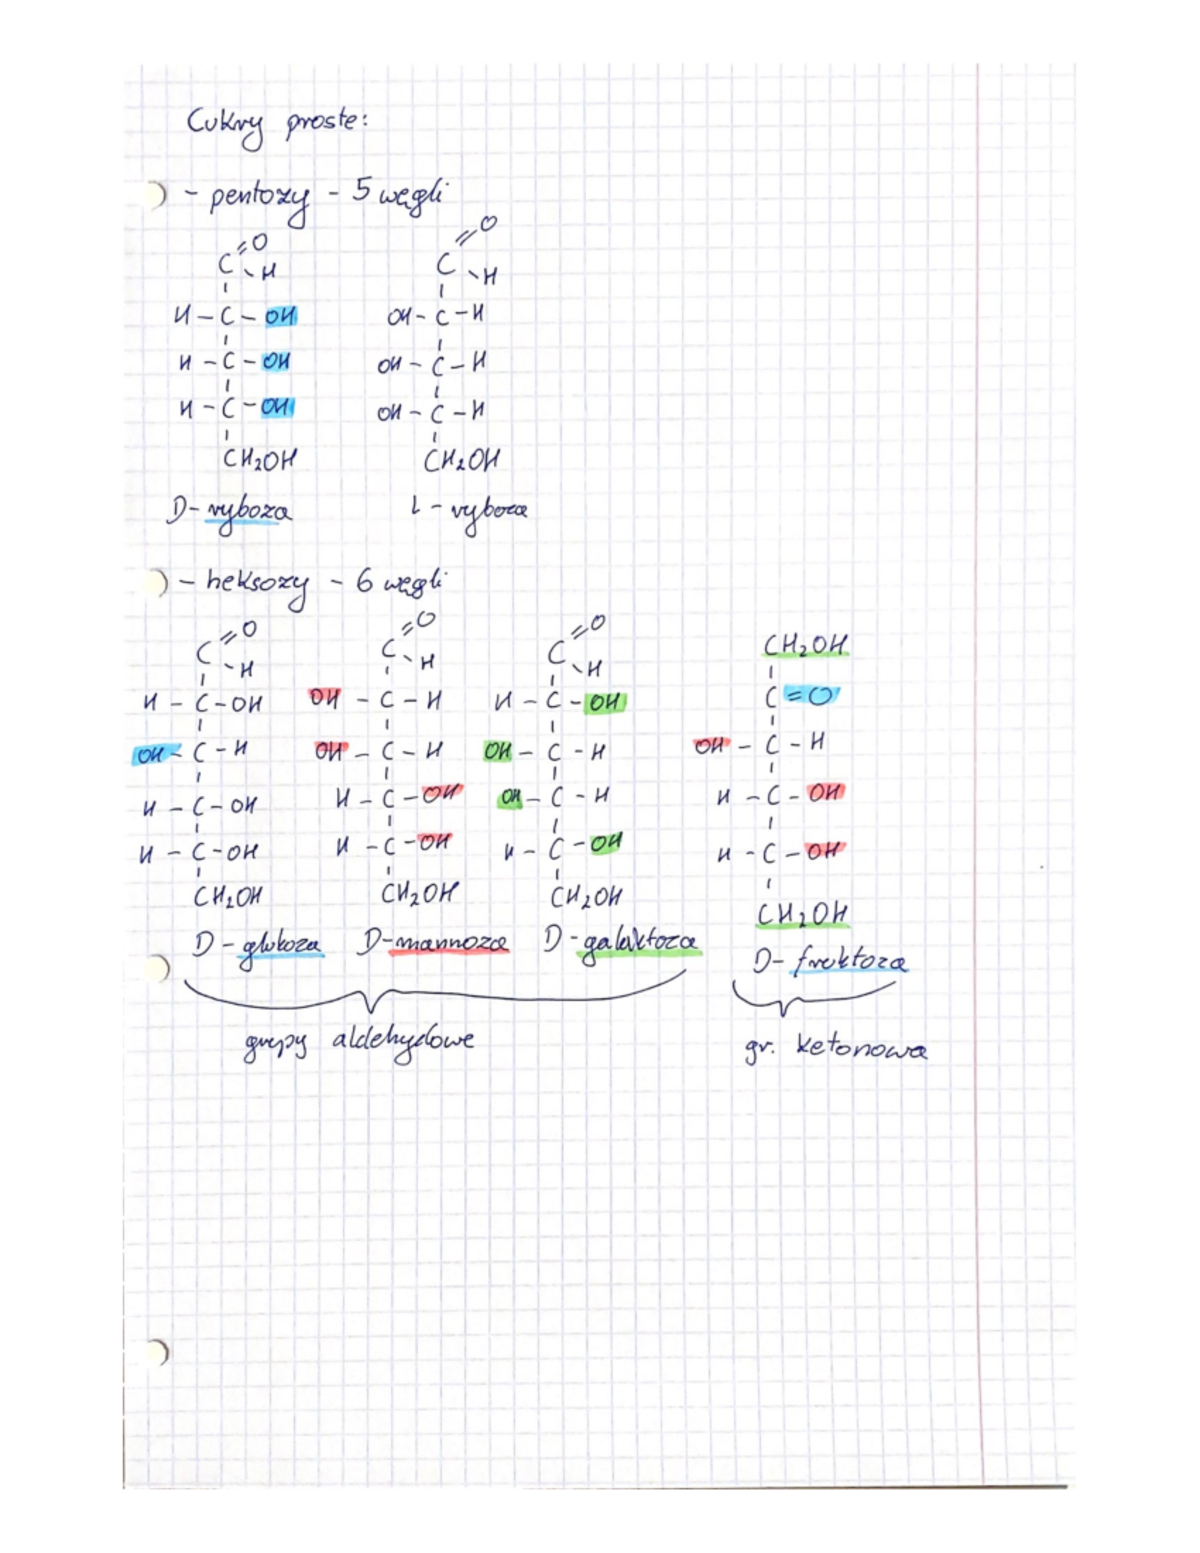 Cukry proste:
- pentozy - 5 węgli
C =O   C =O
\ H   \ H
H - C - OH   OH - C - H
H - C - OH   OH - C - H
H - C - OH   OH - C - H
CH2OH   CH2OH
D- ryboza   L - ryboza
- heksozy - 6 węgli
C =O   C =O   C =O   CH2OH
\ H   \ H   \ H   C = O
H - C - OH   OH - C - H   H - C - OH   OH - C - H
OH - C - H   OH - C - H   OH - C - H   H - C - OH
H - C - OH   H - C - OH   OH - C - H   H - C - OH
H - C - OH   H - C - OH   H - C - OH   CH2OH
CH2OH   CH2OH   CH2OH
D - glukoza   D-mannoza   D - galaktoza   D- fruktoza
grupy aldehydowe   gr. ketonowa